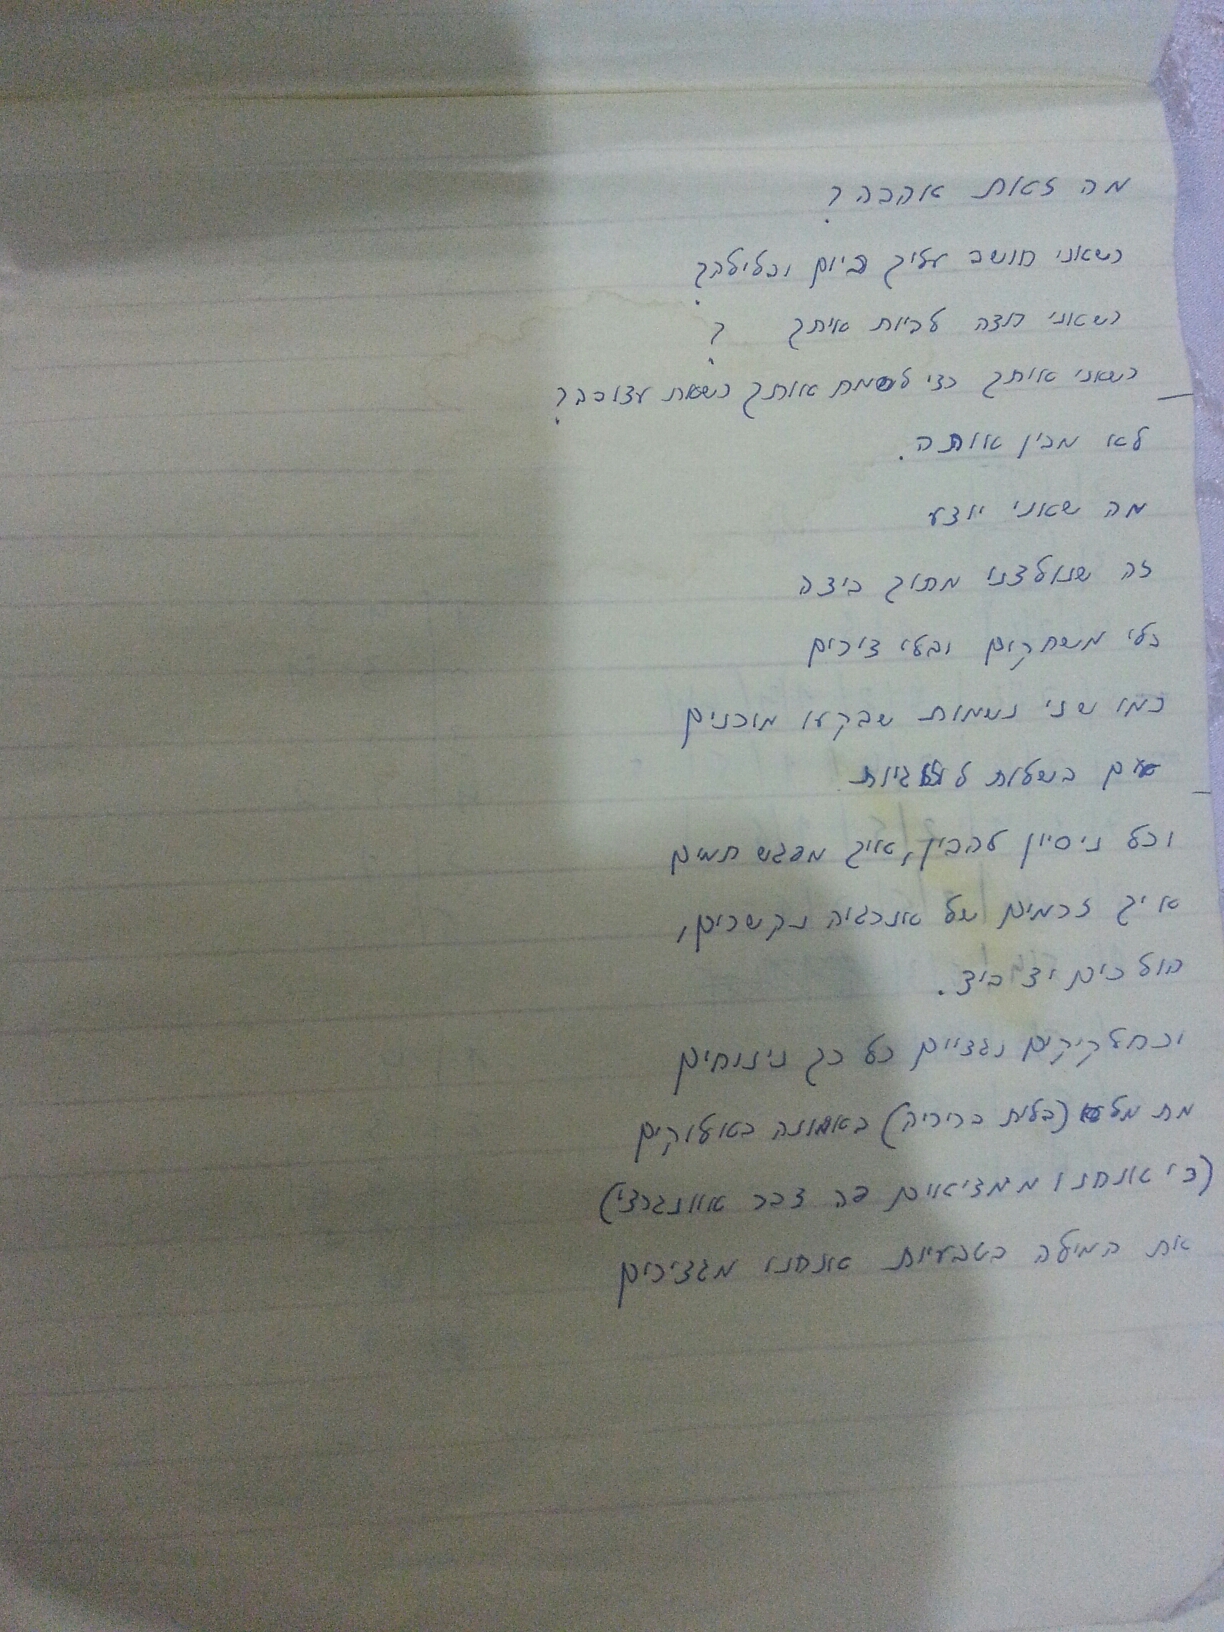 מה זאת אהבה?
כשאני חושב עליך ביום ובלילה?
כשאני רוצה להיות איתך ?
כשאני אותך כדי לשמח אותך כשאת עצובה?
לא מבין אותה.
מה שאני יודע
זה שנולדנו מתוך ביצה
בלי משחקים ובלי צירים
כמו שני נשמות שבקעו מוכנים
עם בשלות
וכל ניסיון להבין, איך מפגש תמים
איך זרמים של אנרגיה נקשרים,
הולכים יד ביד.
וכחלקיקים נגדיים כל כך נינוחים
(בלית ברירה) באמונה
(כי אנחנו ממציאים פה דבר אוונגרדי)
את המילה בטבעיות אנחנו מגדירים